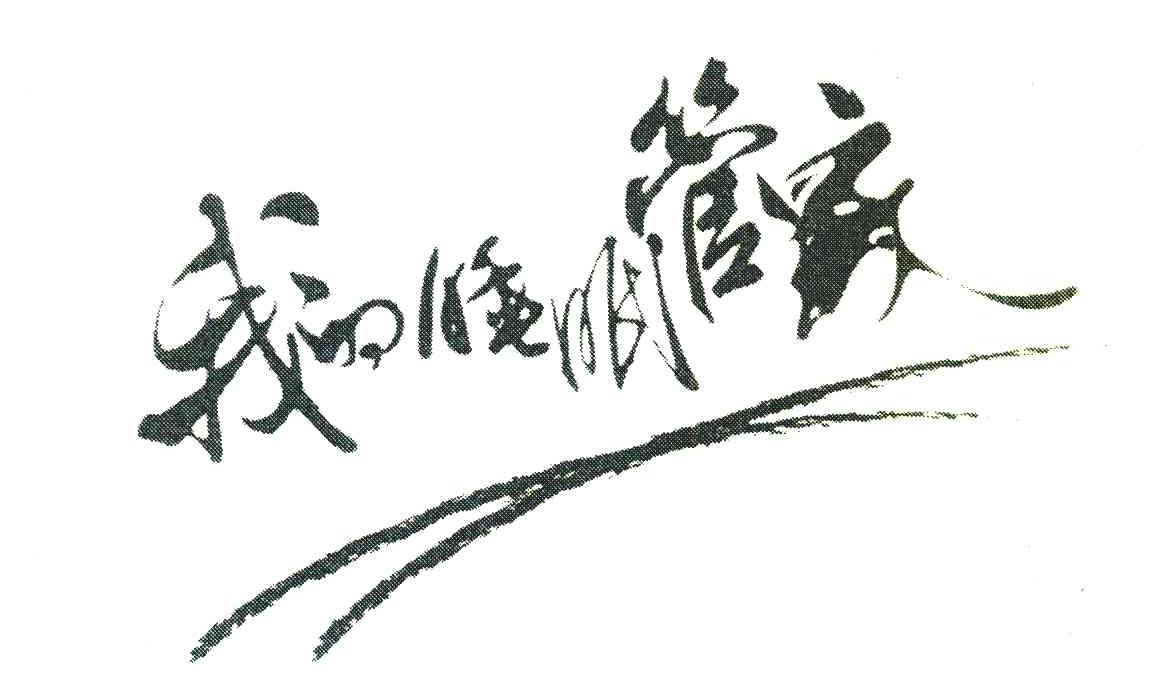 我的睡眠管家